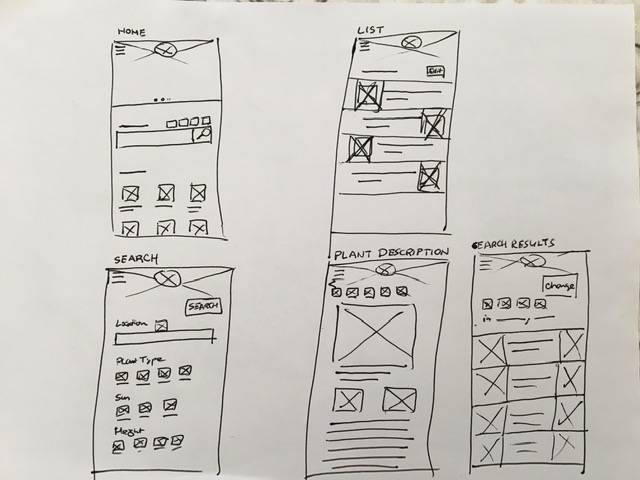 HOME
LIST
Edit
SEARCH
SEARCH
Location
Plant Type
Sun
Height
PLANT DESCRIPTION
SEARCH RESULTS
Change
in